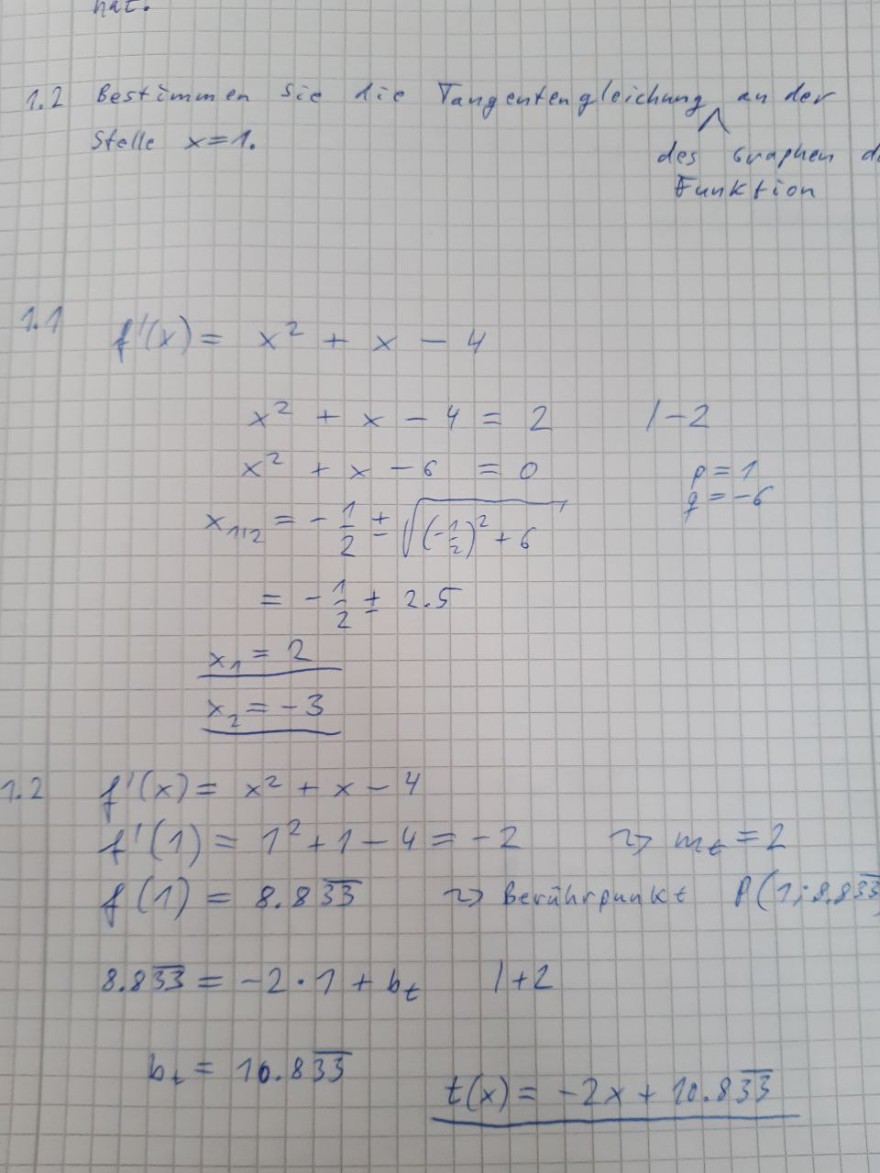 hat.
1.2 Bestimmen Sie die Tangentengleichung ∧ an der
des Graphen d
Funktion
Stelle x=1.
1.1 f'(x) = x² + x - 4
x² + x - 4 = 2 |-2
x² + x - 6 = 0 p = 1
q = -6
x₁/₂ = -1/2 ± √((-1/2)² + 6)
= -1/2 ± 2.5
x₁ = 2
x₂ = -3
1.2 f'(x) = x² + x - 4
f'(1) = 1² + 1 - 4 = -2 ⇝ mₜ = 2
f(1) = 8.83̅3̅ ⇝ Berührpunkt P(1; 8.83̅3̅
8.83̅3̅ = -2 · 1 + bₜ |+2
bₜ = 10.83̅3̅
t(x) = -2x + 10.83̅3̅